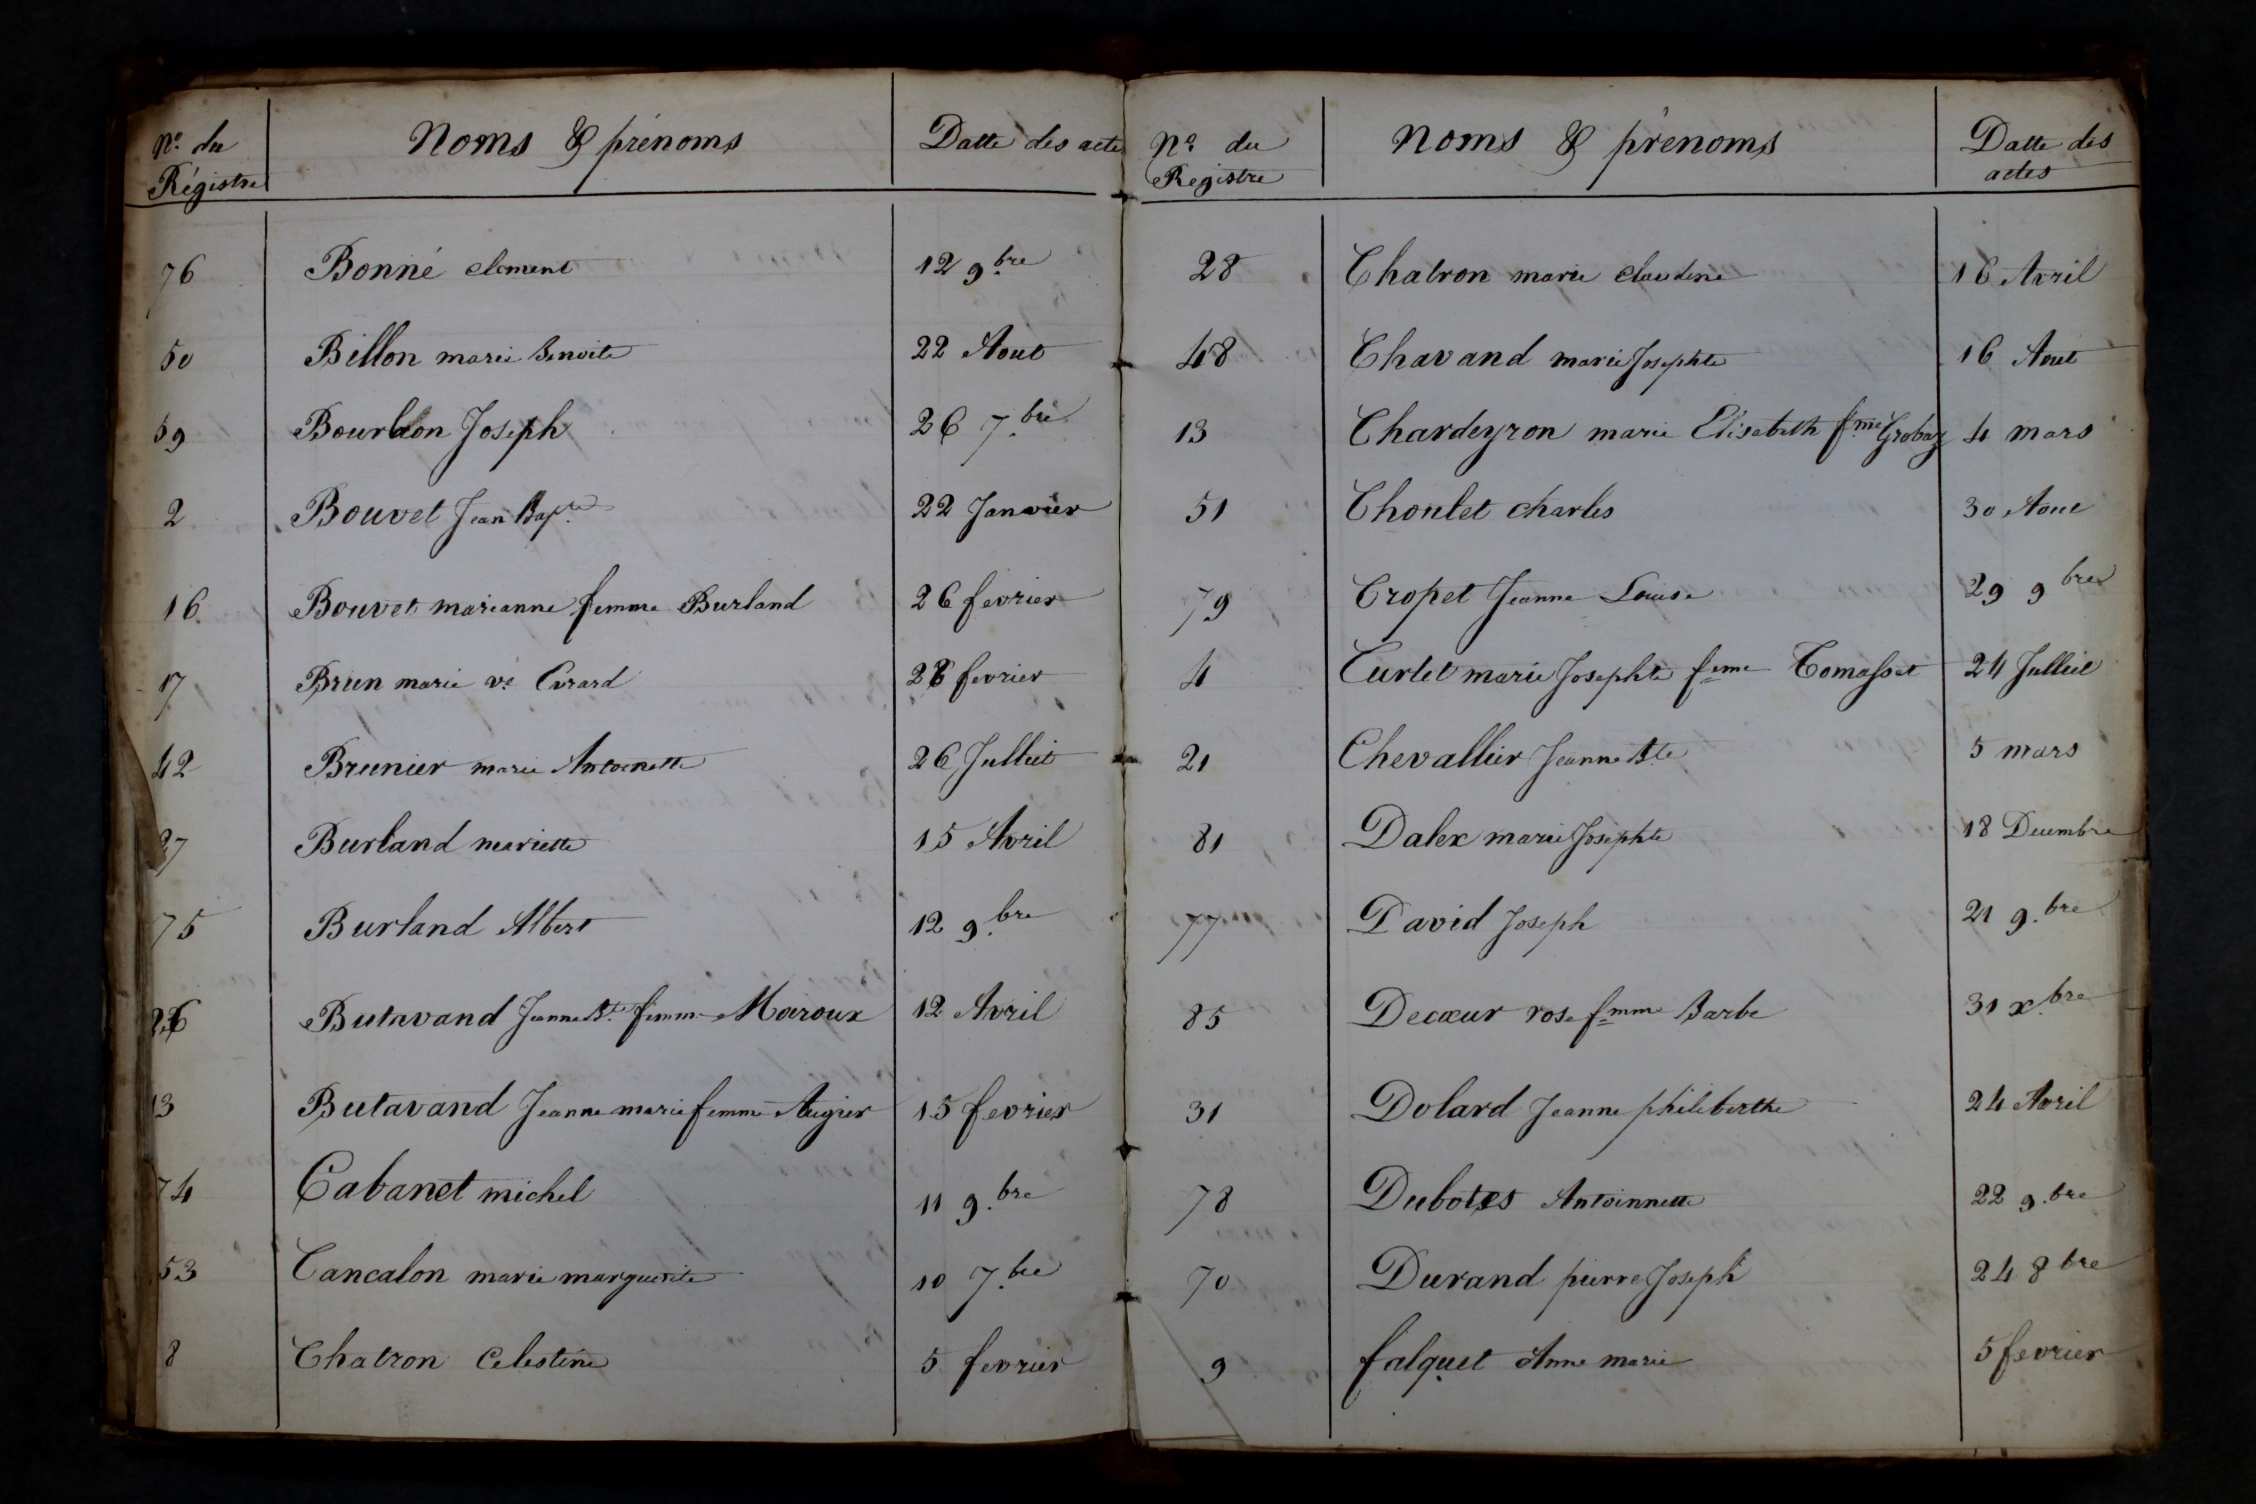 No. du Régistre | Noms & prénoms | Datte des acte
76 Bonné clement 12 9.bre
50 Billon marie Benoite 22 Aout
59 Bourbon Joseph 26 7.bre
2 Bouvet Jean Bapte 22 Janvier
16 Bouvet marianne femme Burland 26 fevrier
17 Brun marie ve Evrard 26 fevrier
42 Brunier marie Antoinette 26 Julliet
27 Burland mariette 15 Avril
75 Burland Albert 12 9.bre
26 Butavand Jeanne Bte femme Moiroux 12 Avril
13 Butavand Jeanne marie femme Augier 15 fevrier
74 Cabanet michel 11 9.bre
53 Cancalon marie marguerite 10 7.bre
8 Chatron Celestine 5 fevrier
No. du Registre | Noms & prénoms | Datte des actes
28 Chatron marie claudine 16 Avril
48 Chavand marie Josephte 16 Aout
13 Chardeyron marie Elisabeth fme Grobaz 4 mars
51 Choulet charles 30 Aout
79 Cropet Jeanne Louise 29 9bre
4 Curlet marie Josephte feme Tomasset 24 Julliet
21 Chevallier Jeanne Bte 5 mars
81 Dalex marie Josephte 18 Decembre
77 David Joseph 21 9.bre
85 Decœur rose fmme Barbe 31 x.bre
31 Dolard Jeanne philiberthe 24 Avril
78 Dubotes Antoinnette 22 9.bre
70 Durand pierre Joseph 24 8bre
9 falquet Anne marie 5 fevrier